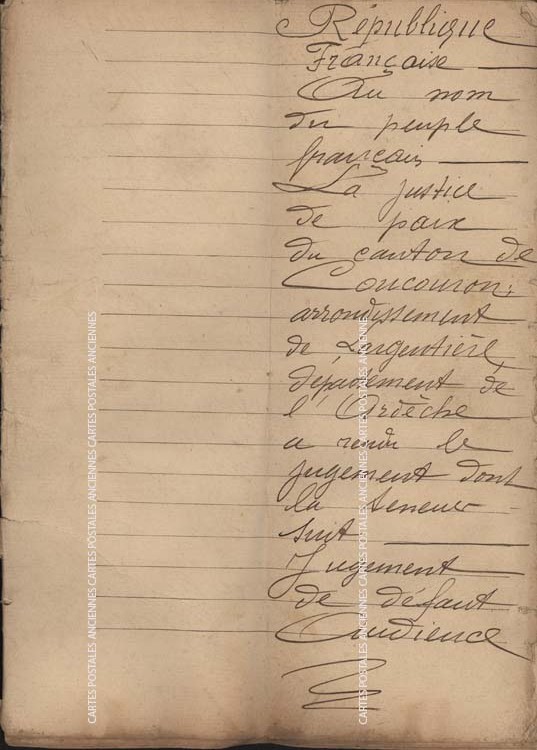 République
Française
Au nom
du peuple
français
La justice
de paix
du canton de
Coucouron,
arrondissement
de Largentière,
département de
l'Ardèche
a rendu le
jugement dont
la teneur
suit
Jugement
de défaut
Audience
CARTES POSTALES ANCIENNES CARTES POSTALES ANCIENNES CARTES POSTALES ANCIENNES
CARTES POSTALES ANCIENNES CARTES POSTALES ANCIENNES CARTES POSTALES ANCIENNES